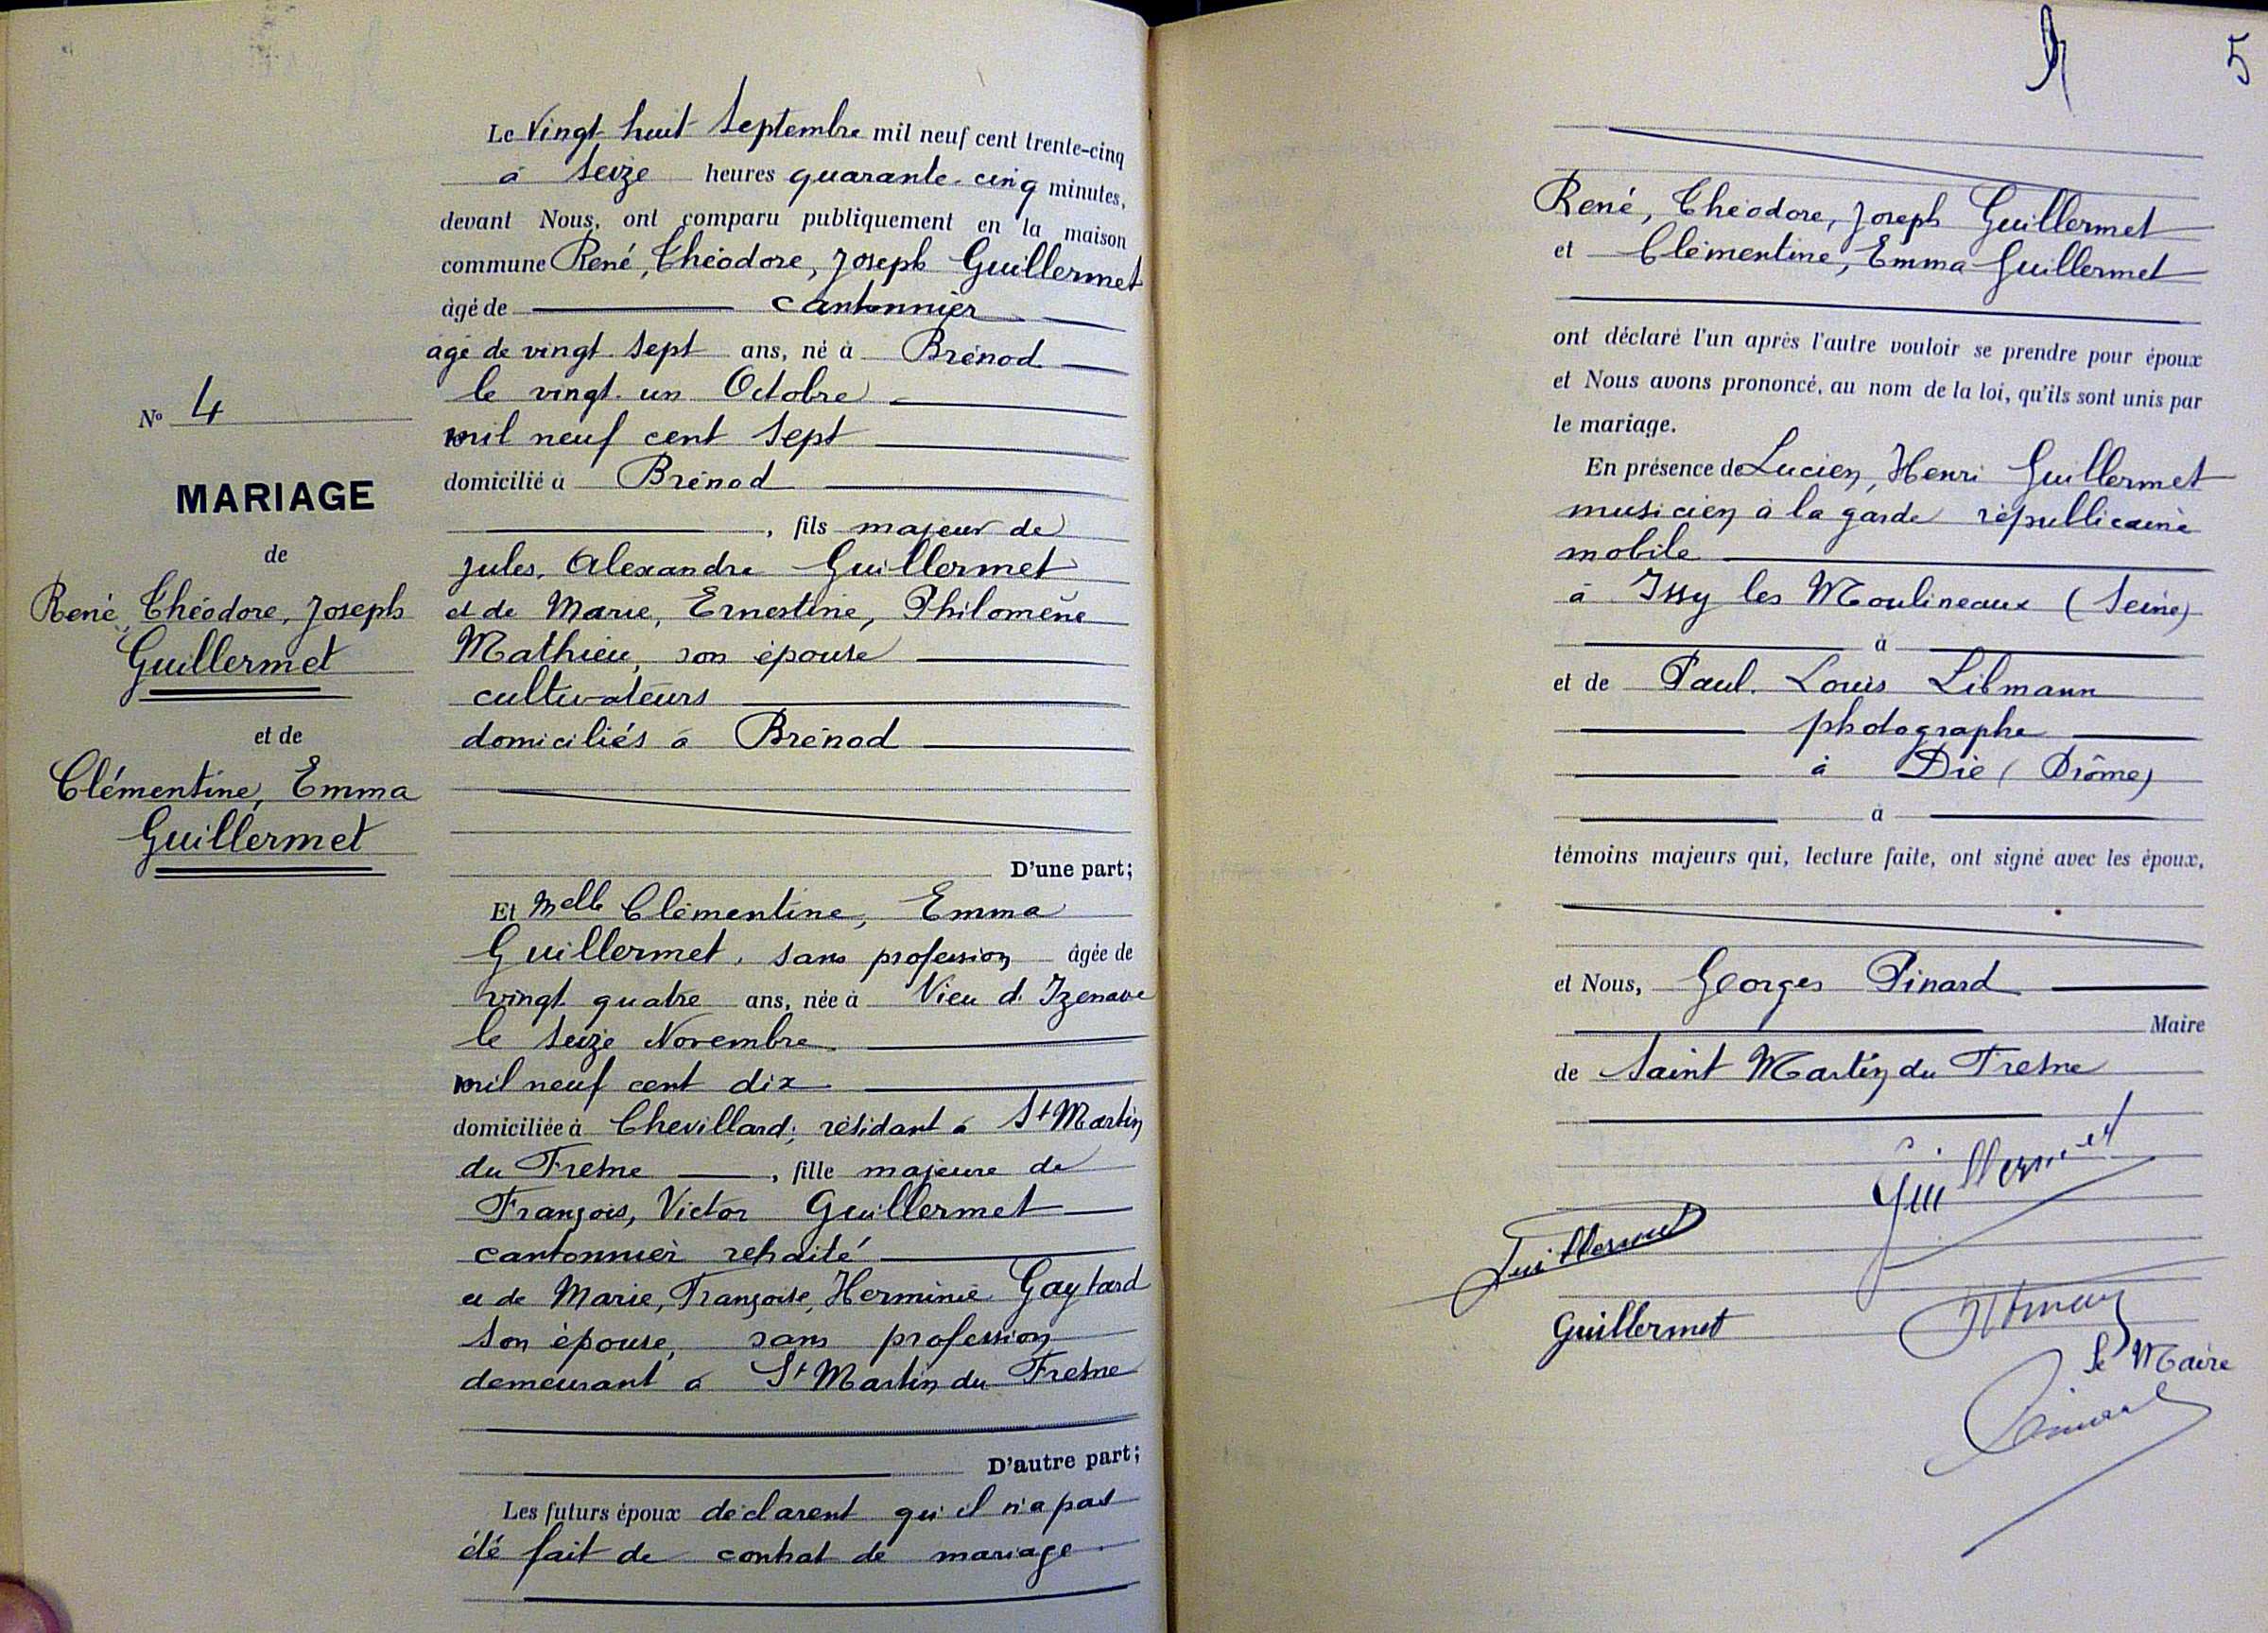 N° 4
MARIAGE
de
René, Théodore, Joseph
Guillermet
et de
Clémentine, Emma
Guillermet
Le Vingt huit Septembre mil neuf cent trente-cinq
à seize heures quarante-cinq minutes,
devant Nous, ont comparu publiquement en la maison
commune René, Théodore, Joseph Guillermet
âgé de cantonnier
agé de vingt sept ans, né à Brénod
le vingt un Octobre
mil neuf cent sept
domicilié à Brénod
, fils majeur de
Jules, Alexandre Guillermet
et de Marie, Ernestine, Philomène
Mathieu, son épouse
cultivateurs
domiciliés à Brénod
D'une part;
Et Melle Clémentine, Emma
Guillermet, sans profession âgée de
vingt quatre ans, née à Vieu d'Izenave
le seize Novembre
mil neuf cent dix
domiciliée à Chevillard, résidant à St Martin
du Fresne, fille majeure de
François, Victor Guillermet
cantonnier retraité
et de Marie, Françoise, Herminie Gaytard
son épouse, sans profession
demeurant à St Martin du Fresne
D'autre part;
Les futurs époux déclarent qu'il n'a pas
été fait de contrat de mariage.
5
René, Théodore, Joseph Guillermet
et Clémentine, Emma Guillermet
ont déclaré l'un après l'autre vouloir se prendre pour époux
et Nous avons prononcé, au nom de la loi, qu'ils sont unis par
le mariage.
En présence de Lucien, Henri Guillermet
musicien à la garde républicaine
mobile
à Issy les Moulineaux (Seine)
à
et de Paul. Louis Libmann
photographe
à Die (Drôme)
à
témoins majeurs qui, lecture faite, ont signé avec les époux,
et Nous, Georges Pinard
Maire
de Saint Martin du Fresne
Guillermet
Guillermet
Guillermet
Le Maire
Pinard